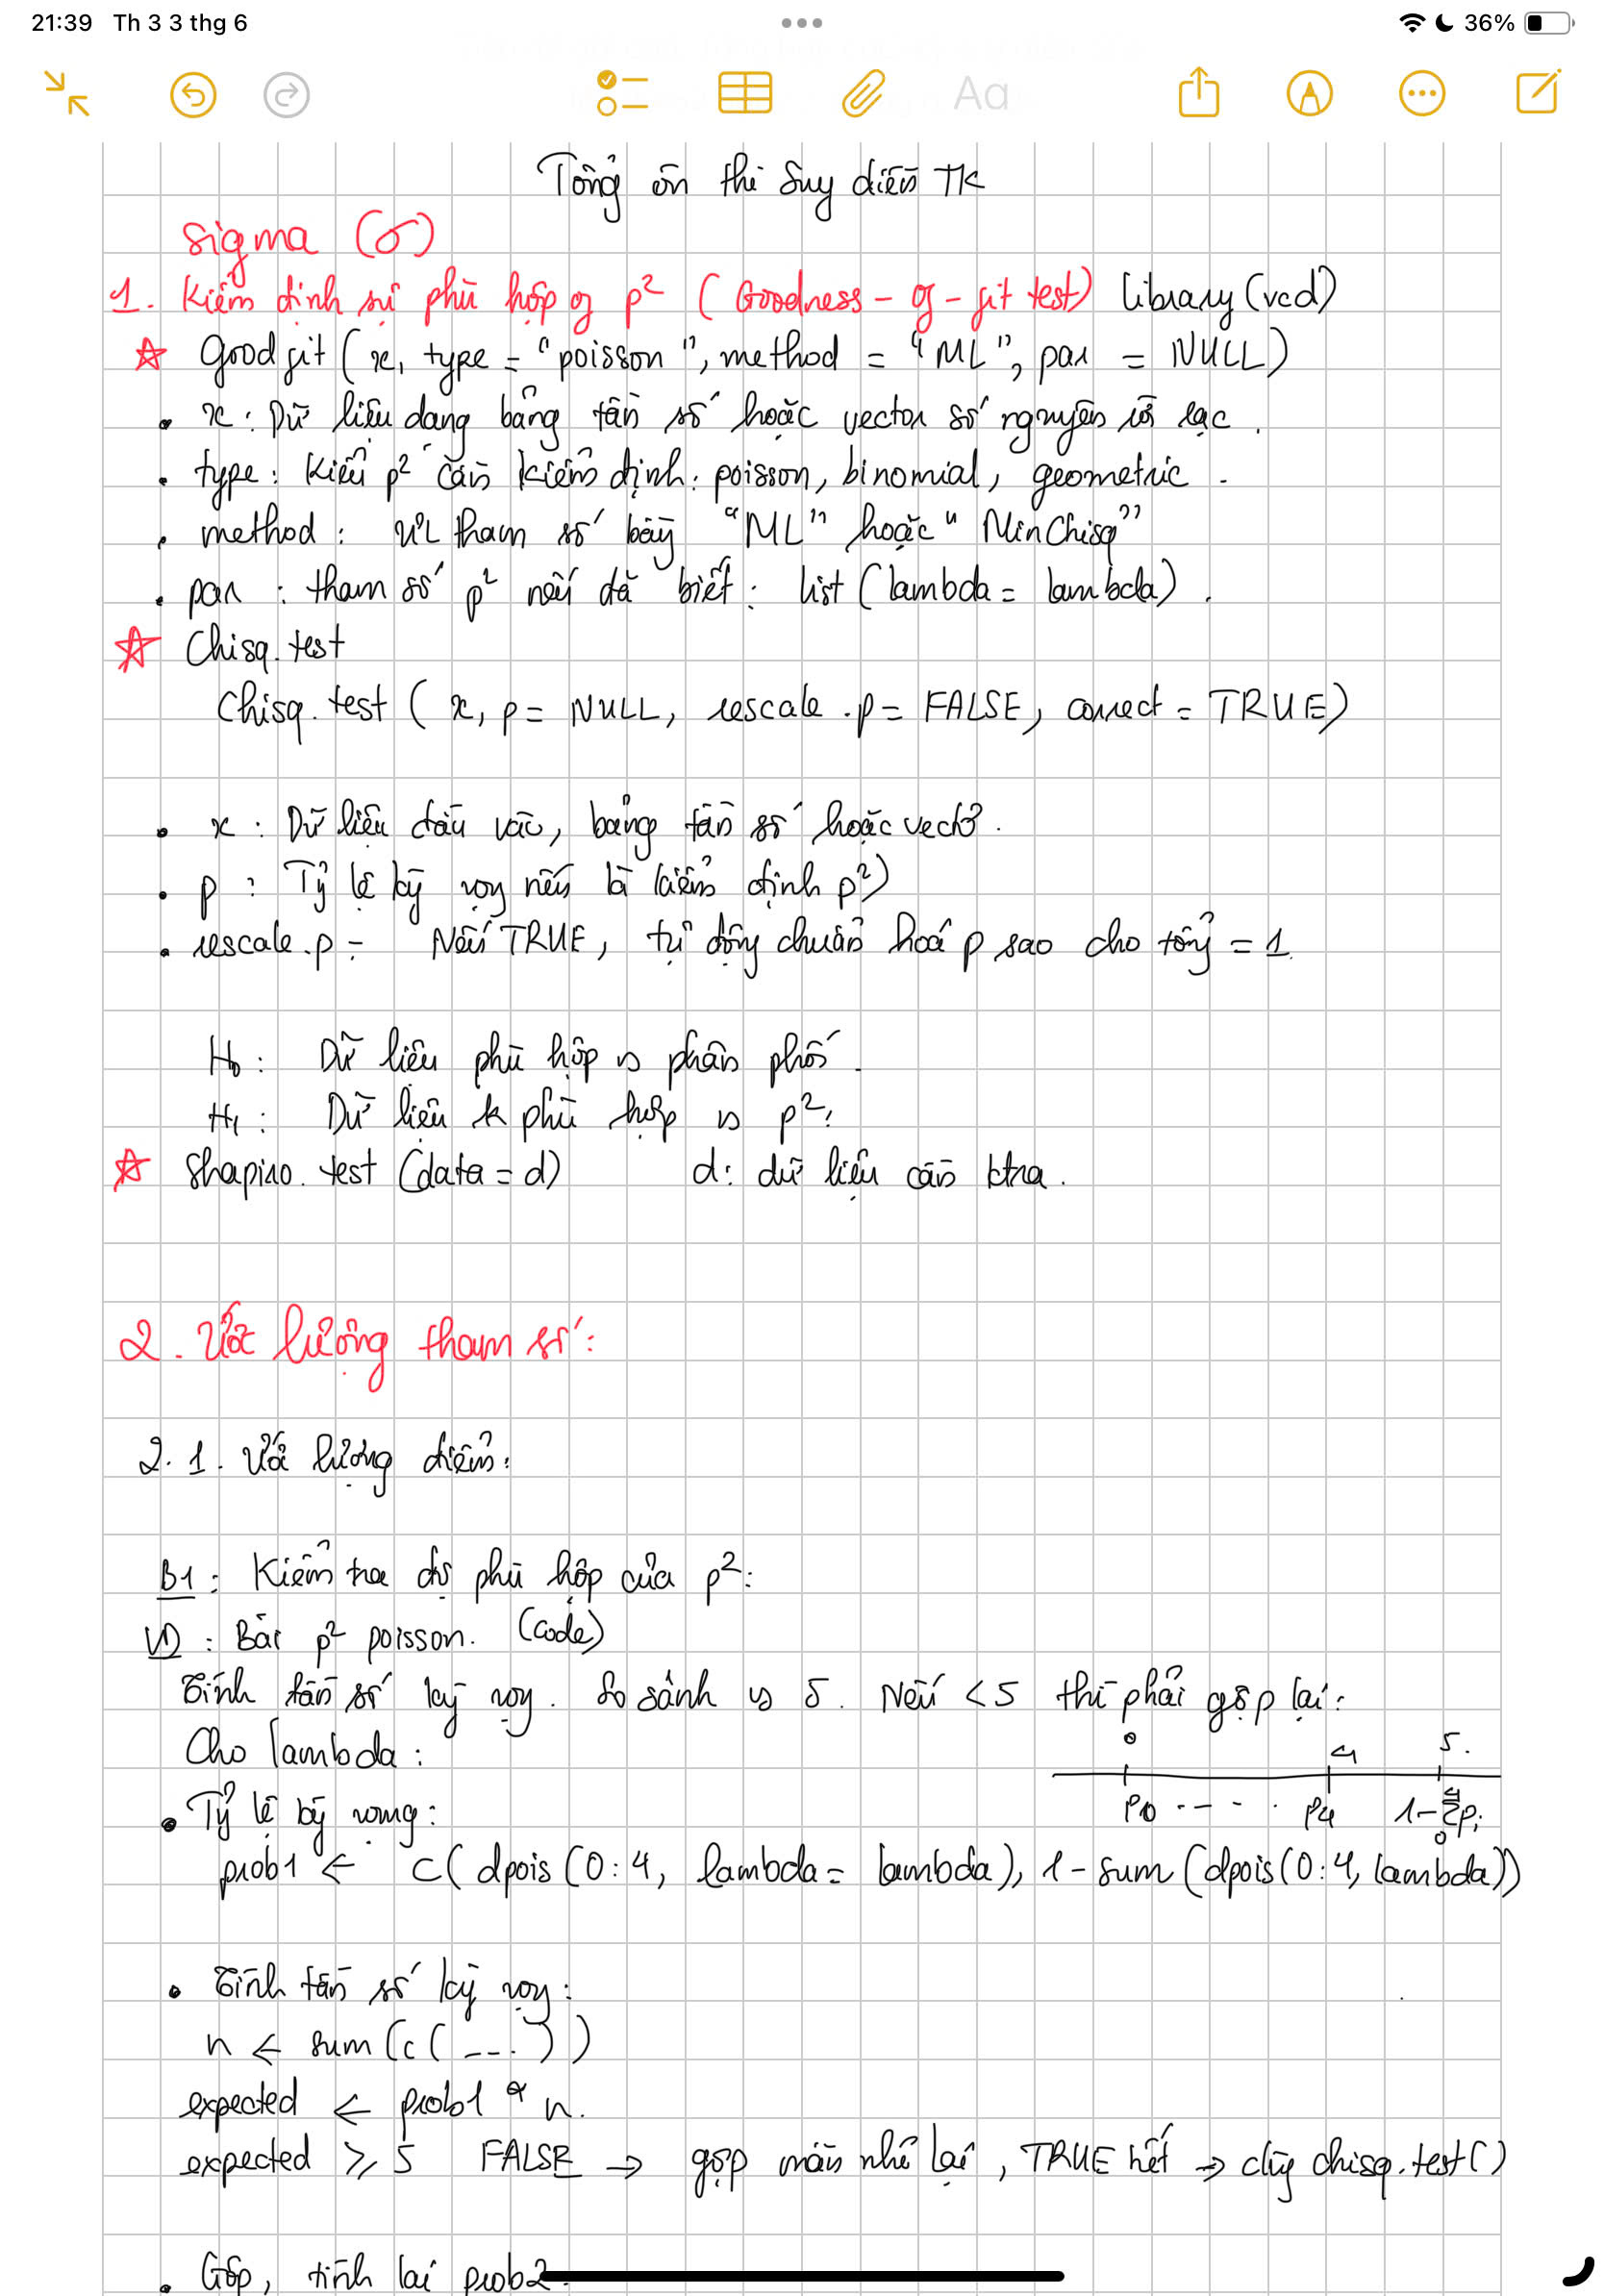 21:39 Th 3 3 thg 6
36%
Aa
Tổng ôn thi Suy diễn TK
Sigma (σ)
1. Kiểm định sự phù hợp of p² (Goodness-of-fit test) library(vcd)
☆ goodfit (x, type = "poisson", method = "ML", par = NULL)
• x: Dữ liệu dạng bảng tần số hoặc vector số nguyên rời rạc.
• type: Kiểu p² cần kiểm định: poisson, binomial, geometric.
• method: ƯL tham số bằng "ML" hoặc "MinChisq"
• par: tham số p² nếu đã biết: list (lambda = lambda).
☆ Chisq.test
Chisq.test (x, p = NULL, rescale.p = FALSE, correct = TRUE)
• x: Dữ liệu đầu vào, bảng tần số hoặc vectơ.
• p: Tỷ lệ kỳ vọng nếu là kiểm định p²)
• rescale.p = Nếu TRUE, tự động chuẩn hoá p sao cho tổng = 1.
H₀: Dữ liệu phù hợp vs phân phối.
H₁: Dữ liệu k phù hợp vs p².
☆ Shapiro.test (data = d) d: dữ liệu cần ktra.
2. Ước lượng tham số:
2.1. Ước lượng điểm:
B1: Kiểm tra độ phù hợp của p²:
VD: Bài p² poisson. (Code)
Tính tần số kỳ vọng. So sánh vs 5. Nếu < 5 thì phải gộp lại:
Cho lambda:
0 4 5.
P₀ ---- . P₄ 1-Σpᵢ
• Tỷ lệ kỳ vọng:
prob1 ← c(dpois(0:4, lambda = lambda), 1 - sum(dpois(0:4, lambda))
• Tính tần số kỳ vọng:
n ← sum(c(---.))
expected ← prob1 * n.
expected ≥ 5 FALSE → gộp nhỏ lại, TRUE hết → dùng chisq.test()
• Gộp, tính lại prob2